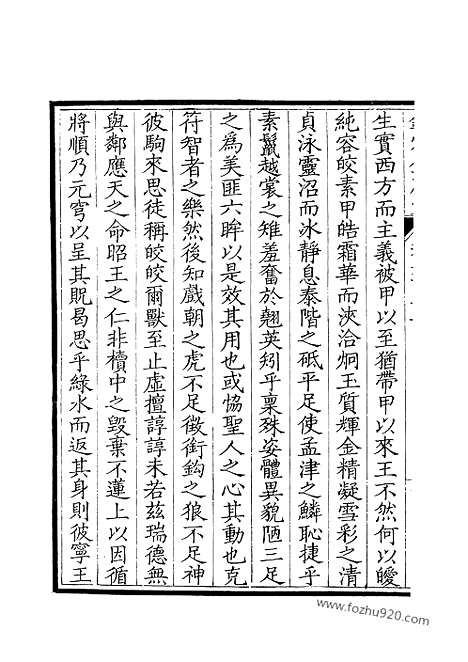 生實西方而主義被甲以至猶帶甲以來王不然何以皦
純容皎素甲皓霜華而浹洽炯玉質輝金精凝雪彩之清
貞泳靈沼而冰靜息泰階之砥平足使孟津之鱗恥捷乎
素鬣越裳之雉羞奮於翹英矧乎稟殊姿體異貌陋三足
之爲美匪六眸以是效其用也或恊聖人之心其動也克
符智者之樂然後知戲朝之虎不足徵銜鈎之狼不足神
彼駒來思徒稱皎皎爾獸至止虛擅諄諄未若茲瑞德無
與鄰應天之命昭王之仁非櫝中之毀棄不蓮上以因循
將順乃元穹以呈其貺曷思乎綠水而返其身則彼寧王
www.fozhu920.com